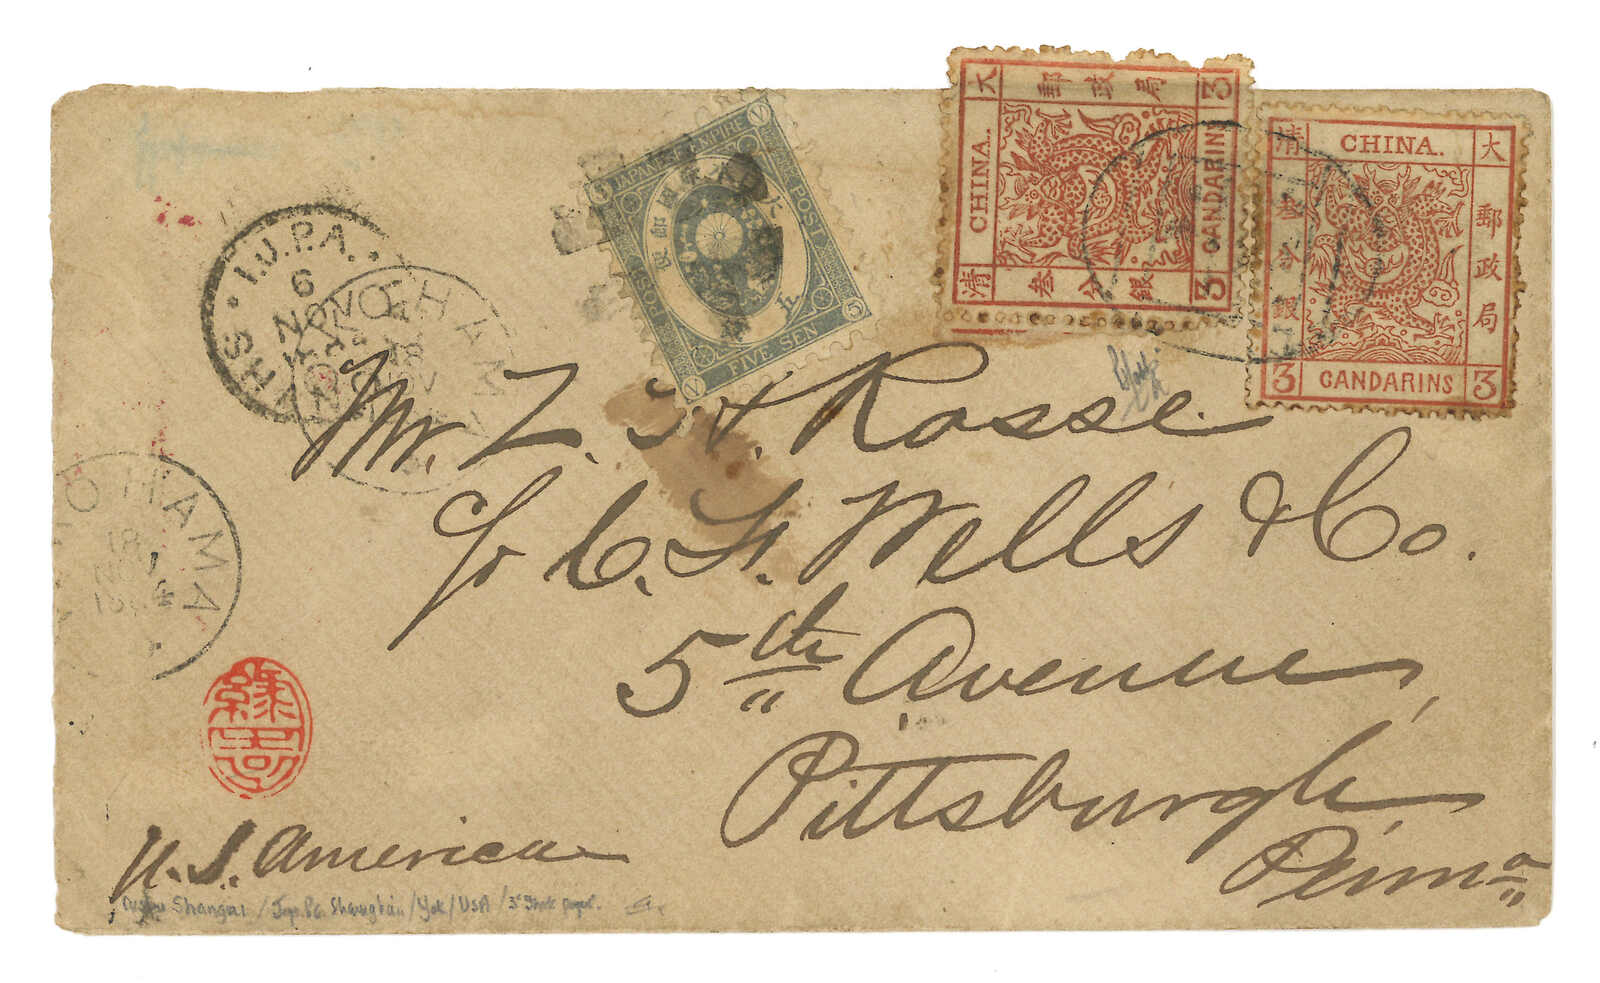 JAPANESE EMPIRE
POST
FIVE SEN
5
V
大 郵政局
3
CHINA.
CANDARINS
清 叁分銀 3
清 CHINA. 大
郵政局
叁分銀
3 CANDARINS 3
I.J.P.A.
6
NOV
SHANGHAI
YOKOHAMA
18
NOV
YOKOHAMA
18
NOV
Mr. Z. H. Rosse.
c/o C. H. Wells & Co.
5th Avenue,
Pittsburgh,
Penna
U.S. America
Shangai / Jap. Po. Shanghai / Yok / USA / 3c Thick paper.